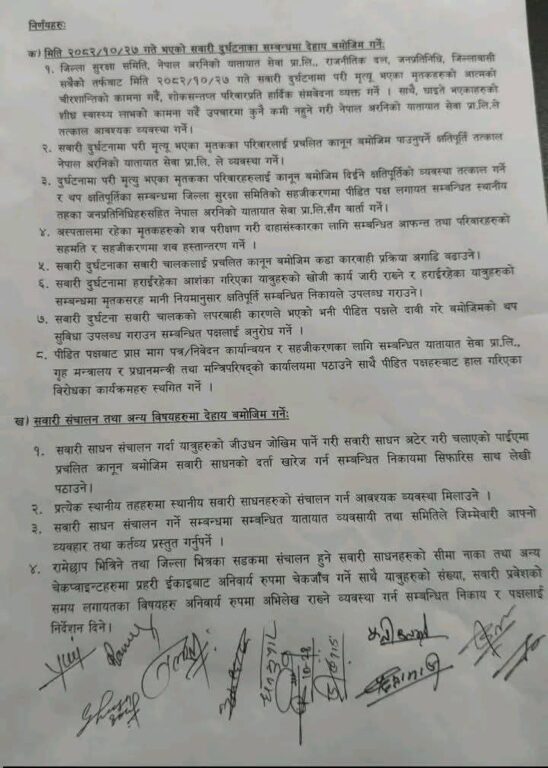 निर्णयहरुः
क) मिति २०८२/१०/२७ गते भएको सवारी दुर्घटनाका सम्बन्धमा देहाय बमोजिम गर्नेः
१. जिल्ला सुरक्षा समिति, नेपाल अरनिको यातायात सेवा प्रा.लि., राजनीतिक दल, जनप्रतिनिधि, जिल्लावासी
सबैको तर्फबाट मिति २०८२/१०/२७ गते सवारी दुर्घटनामा परी मृत्यू भएका मृतकहरुको आत्मको
चीरशान्तिको कामना गर्दै, शोकसन्तप्त परिवारप्रति हार्दिक संमवेदना व्यक्त गर्ने । साथै, घाइते भएकाहरुको
शीघ्र स्वास्थ्य लाभको कामना गर्दै उपचारमा कुनै कमी नहुने गरी नेपाल अरनिको यातायात सेवा प्रा.लि.ले
तत्काल आवश्यक व्यवस्था गर्ने।
२. सवारी दुर्घटनामा परी मृत्यू भएका मृतकका परिवारलाई प्रचलित कानून बमोजिम पाउनुपर्ने क्षतिपूर्ति तत्काल
नेपाल अरनिको यातायात सेवा प्रा.लि. ले व्यवस्था गर्ने।
३. दुर्घटनामा परी मृत्यु भएका मृतकका परिवारहरुलाई कानून बमोजिम दिईने क्षतिपूर्तिको व्यवस्था तत्काल गर्ने
र थप क्षतिपूर्तिका सम्बन्धमा जिल्ला सुरक्षा समितिको सहजीकरणमा पीडित पक्ष लगायत सम्बन्धित स्थानीय
तहका जनप्रतिनिधिहरुसहित नेपाल अरनिको यातायात सेवा प्रा.लि.सँग वार्ता गर्ने।
४. अस्पतालमा रहेका मृतकहरुको शव परीक्षण गरी दाहासंस्कारका लागि सम्बन्धित आफन्त तथा परिवारहरुको
सहमति र सहजीकरणमा शव हस्तान्तरण गर्ने ।
५. सवारी दुर्घटनाका सवारी चालकलाई प्रचलित कानून बमोजिम कडा कारवाही प्रक्रिया अगाडि बढाउने।
६. सवारी दुर्घटनामा हराईरहेका आशंका गरिएका यात्रुहरुको खोजी कार्य जारी राख्ने र हराईरहेका यात्रुहरुको
सम्बन्धमा मृतकसरह मानी नियमानुसार क्षतिपूर्ति सम्बन्धित निकायले उपलब्ध गराउने।
७. सवारी दुर्घटना सवारी चालकको लपरबाही कारणले भएको भनी पीडित पक्षले दावी गरे बमोजिमको थप
सुविधा उपलब्ध गराउन सम्बन्धित पक्षलाई अनुरोध गर्ने ।
८. पीडित पक्षबाट प्राप्त माग पत्र/निवेदन कार्यान्वयन र सहजीकरणका लागि सम्बन्धित यातायात सेवा प्रा.लि.,
गृह मन्त्रालय र प्रधानमन्त्री तथा मन्त्रिपरिषद्को कार्यालयमा पठाउने साथै पीडित पक्षहरुबाट हाल गरिएका
बिरोधका कार्यक्रमहरु स्थगित गर्ने ।
ख) सवारी संचालन तथा अन्य विषयहरुमा देहाय बमोजिम गर्नेः
१. सवारी साधन संचालन गर्दा यात्रुहरुको जीउधन जोखिम पार्ने गरी सवारी साधन अटेर गरी चलाएको पाईएमा
प्रचलित कानून बमोजिम सवारी साधनको दर्ता खारेज गर्न सम्बन्धित निकायमा सिफारिस साथ लेखी
पठाउने।
२. प्रत्येक स्थानीय तहहरुमा स्थानीय सवारी साधनहरुको संचालन गर्न आवश्यक व्यवस्था मिलाउने ।
३. सवारी साधन संचालन गर्ने सम्बन्धमा सम्बन्धित यातायात व्यवसायी तथा समितिले जिम्मेवारी आफ्नो
व्यवहार तथा कर्तव्य प्रस्तुत गर्नुपर्ने ।
४. रामेछाप भित्रिने तथा जिल्ला भित्रका सडकमा संचालन हुने सवारी साधनहरुको सीमा नाका तथा अन्य
चेकप्वाइन्टहरुमा प्रहरी ईकाइबाट अनिवार्य रुपमा चेकजाँच गर्ने साथै यात्रुहरुको संख्या, सवारी प्रवेशको
समय लगायतका विषयहरु अनिवार्य रुपमा अभिलेख राख्ने व्यवस्था गर्न सम्बन्धित निकाय र पक्षलाई
निर्देशन दिने।